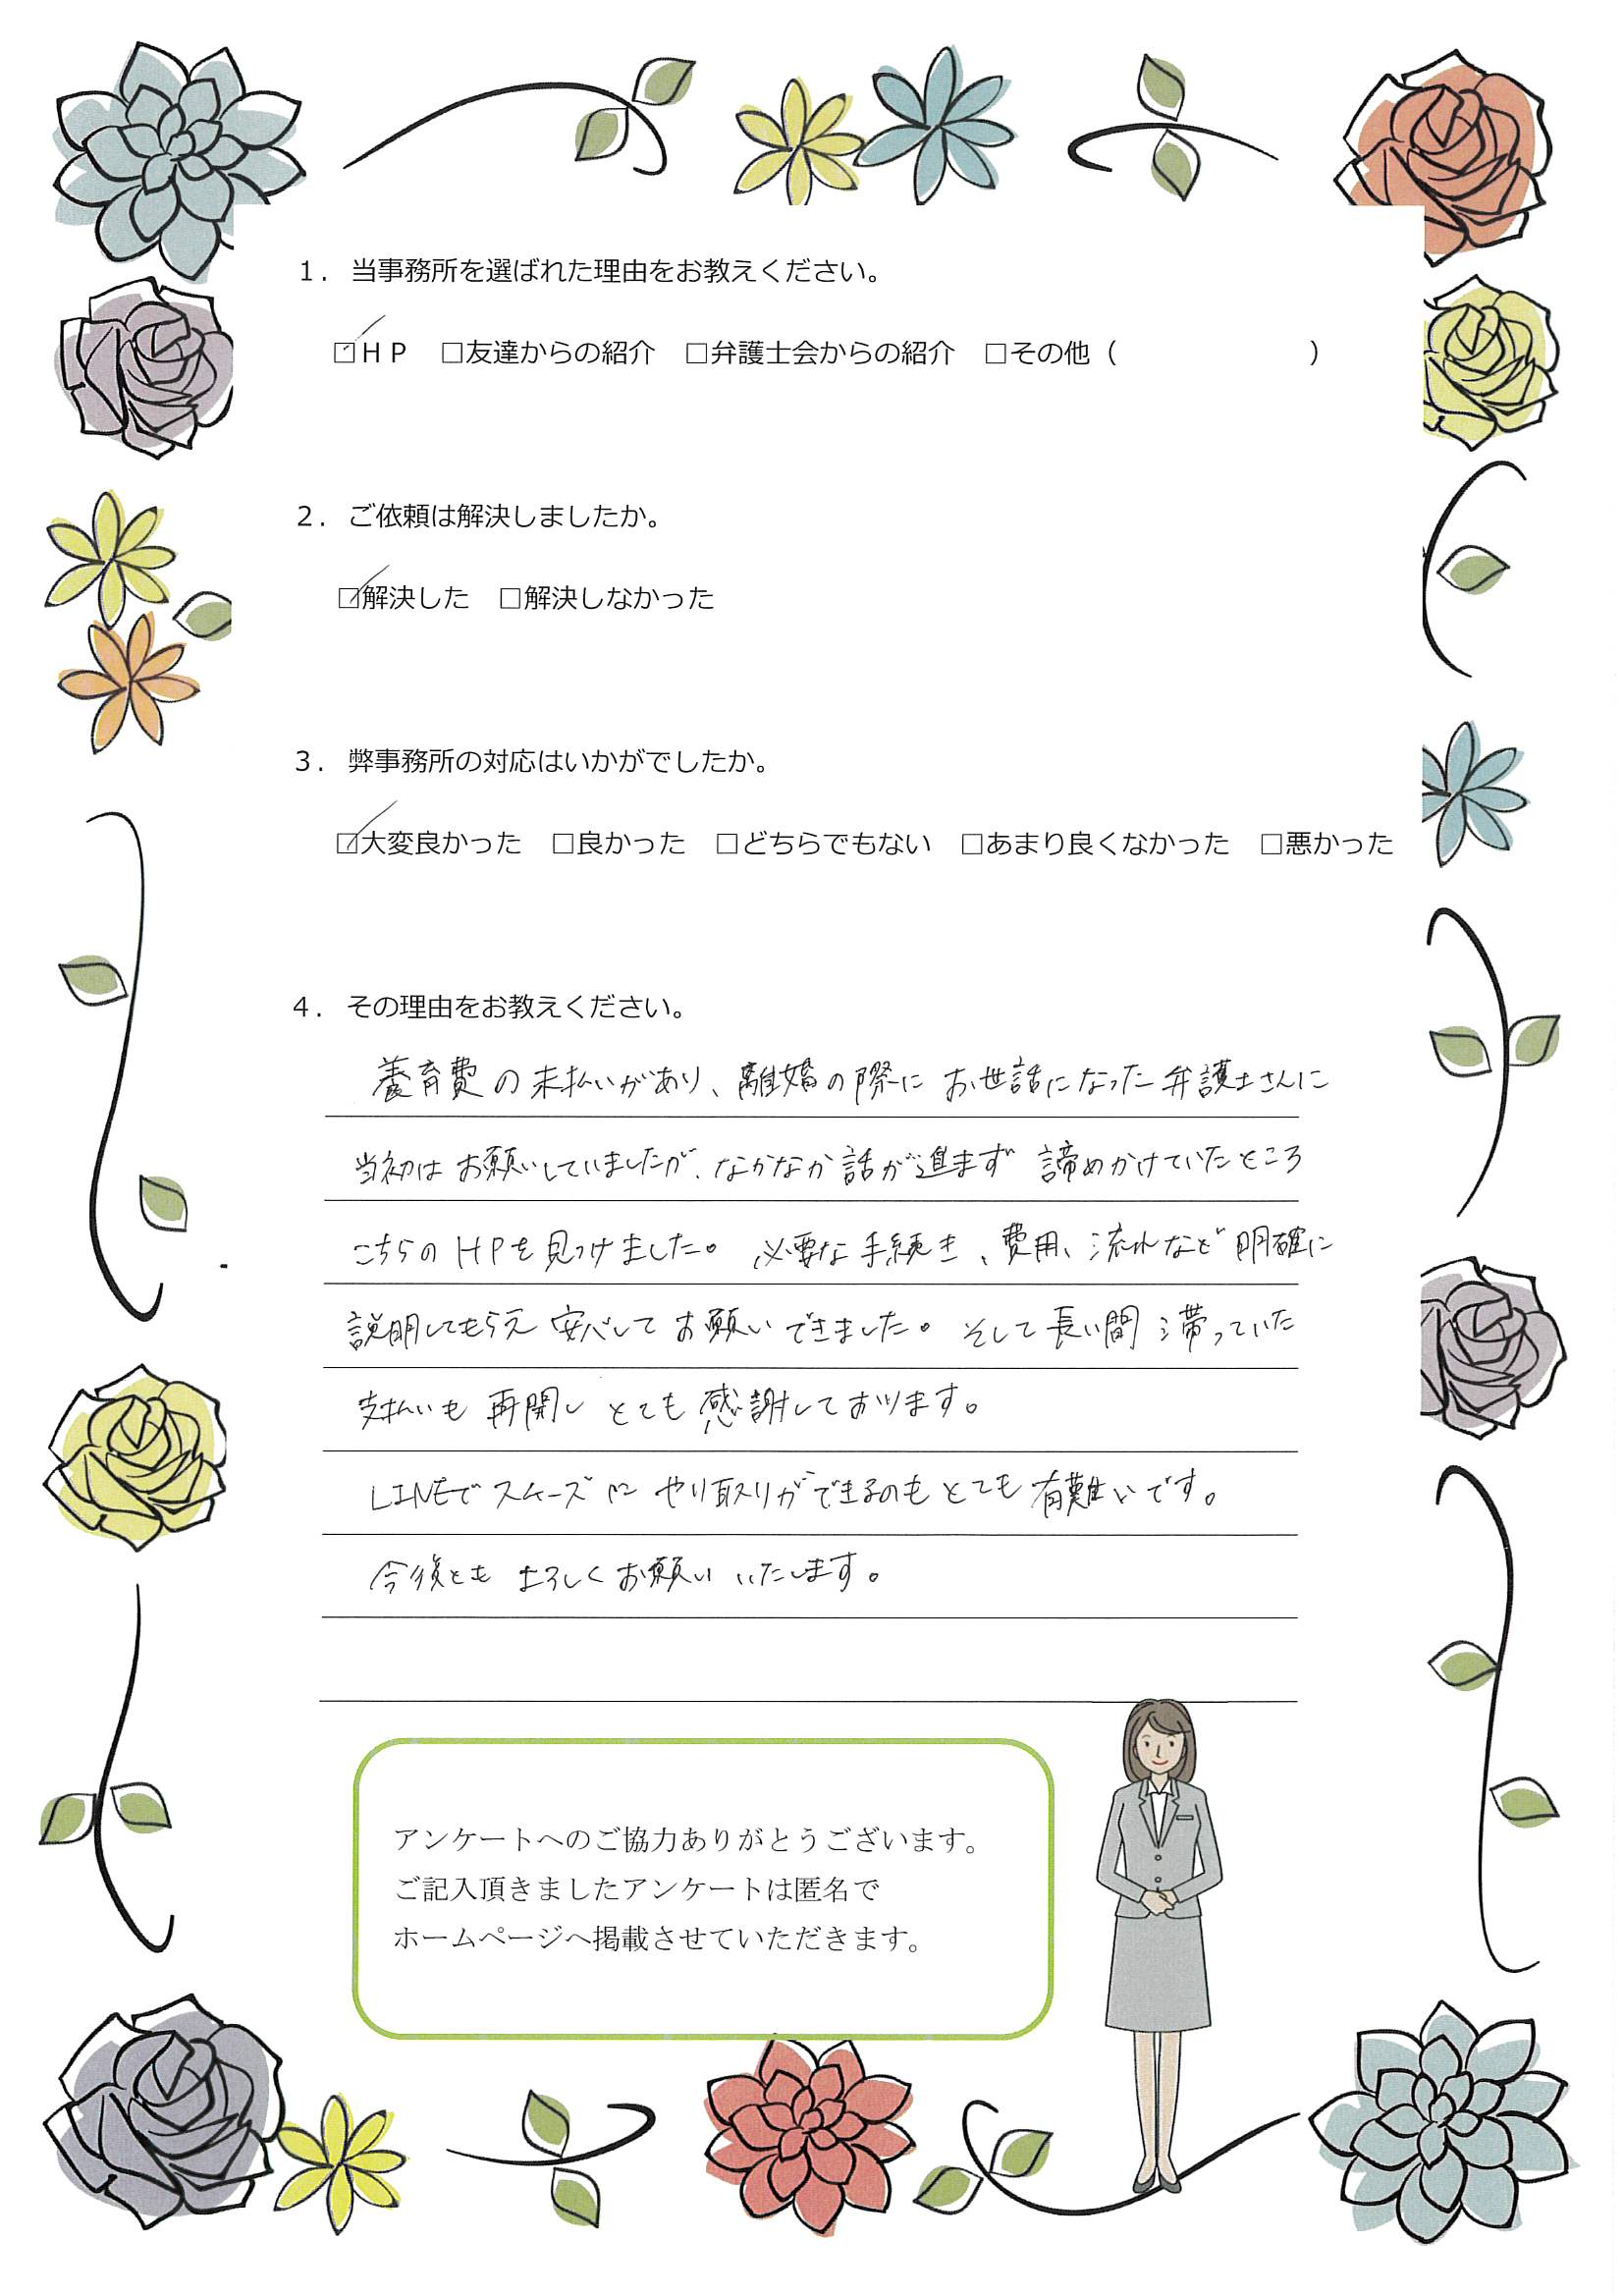 1. 当事務所を選ばれた理由をお教えください。
☑HP □友達からの紹介 □弁護士会からの紹介 □その他（ ）
2. ご依頼は解決しましたか。
☑解決した □解決しなかった
3. 弊事務所の対応はいかがでしたか。
☑大変良かった □良かった □どちらでもない □あまり良くなかった □悪かった
4. その理由をお教えください。
養育費の未払いがあり、離婚の際にお世話になった弁護士さんに
当初はお願いしていましたが、なかなか話が進まず 諦めかけていたところ
こちらのHPを見つけました。 必要な手続き、費用、流れなど明確に
説明してもらえ 安心してお願いできました。 そして長い間 滞っていた
支払いも 再開し とても感謝しております。
LINEでスムーズにやり取りができるのもとても有難いです。
今後とも よろしくお願いいたします。
アンケートへのご協力ありがとうございます。
ご記入頂きましたアンケートは匿名で
ホームページへ掲載させていただきます。